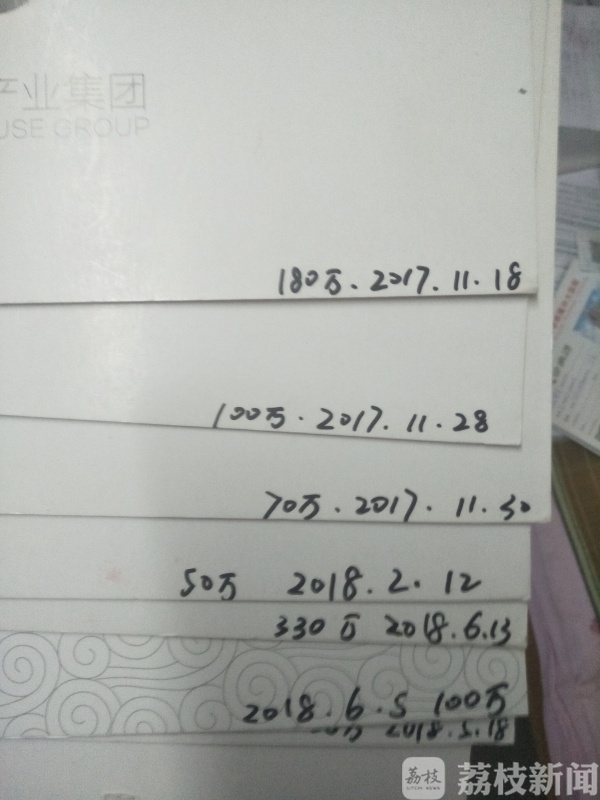 产业集团
USE GROUP
180万.2017.11.18
100万.2017.11.28
70万.2017.11.30
50万 2018.2.12
330万 2018.6.13
2018.6.5 100万
万 2018.5.18
荔枝
LITCHI NEWS
荔枝新闻